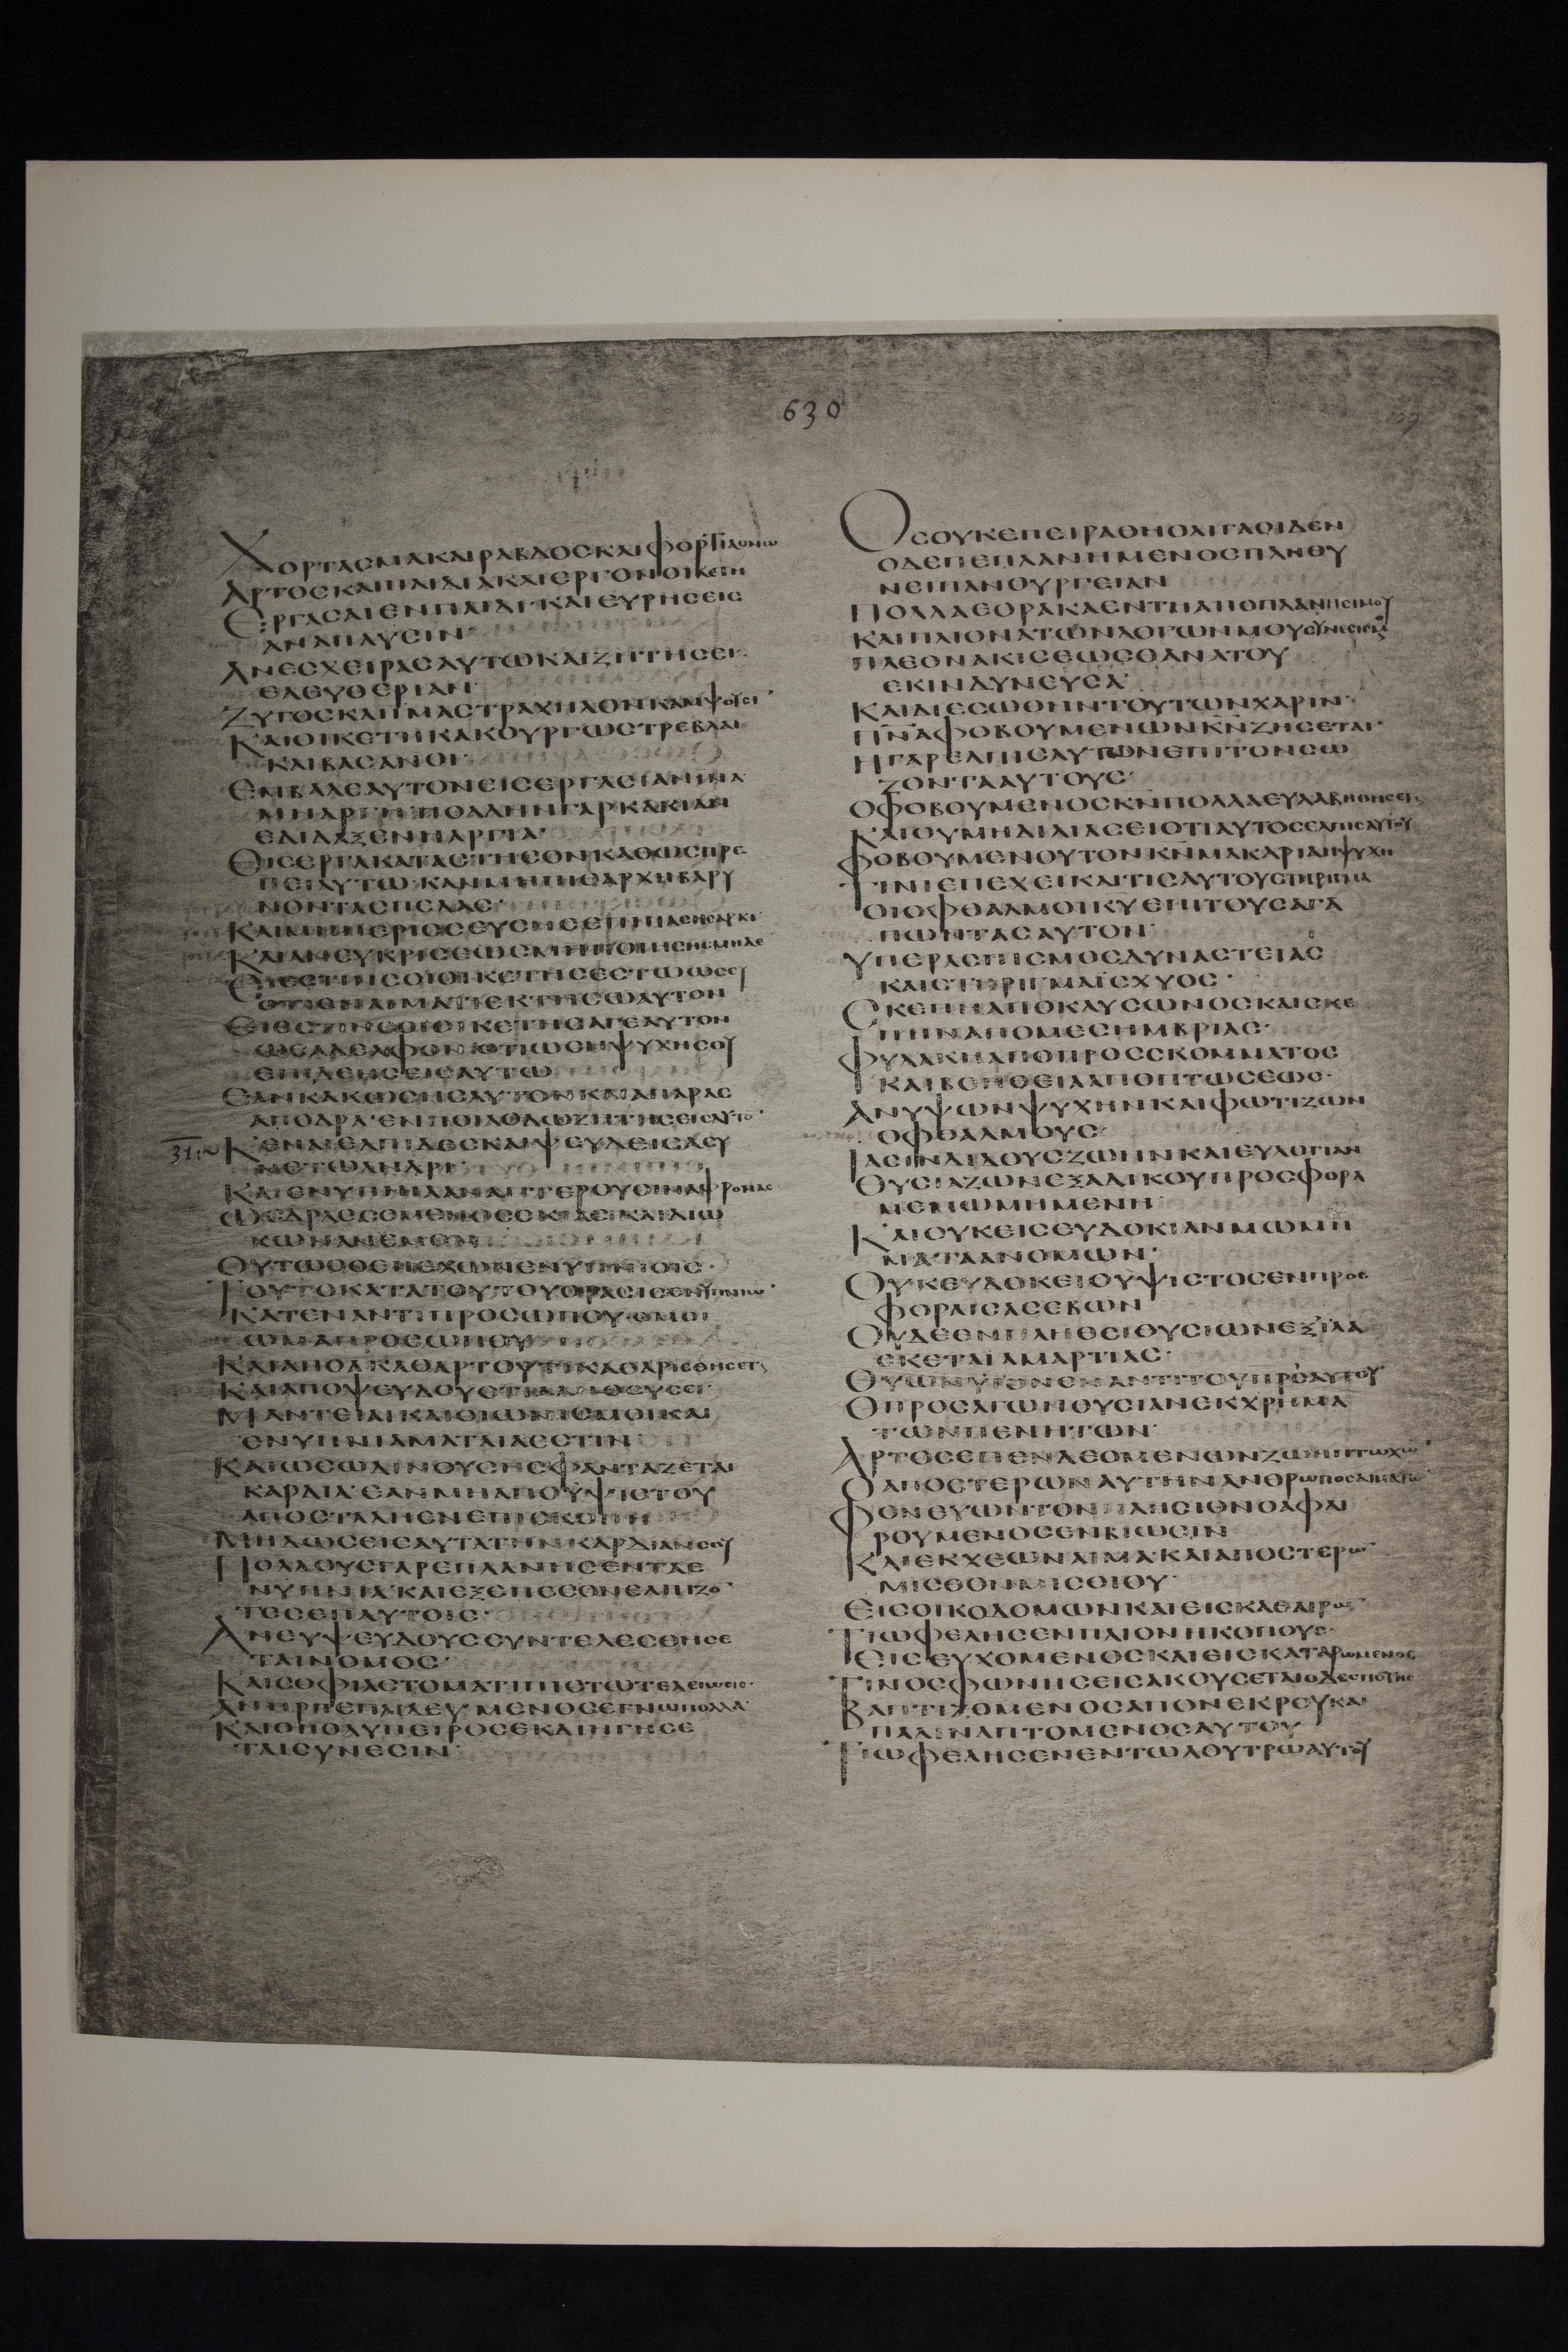 630
ΧΟΡΤΑϹΜΑΚΑΙΡΑΒΔΟϹΚΑΙΦΟΡΤΙΑΟΝΩ
ΑΡΤΟϹΚΑΙΠΑΙΔΙΑΚΑΙΕΡΓΟΝΟΙΚΕΤΗ
ΕΡΓΑϹΑΙΕΝΠΑΙΔΙ·ΚΑΙΕΥΡΗϹΕΙϹ
ΑΝΑΠΑΥϹΙΝ·
ΑΝΕϹΧΕΙΡΑϹΑΥΤΩΚΑΙΖΗΤΗϹΕΙ·
ΕΛΕΥΘΕΡΙΑΝ·
ΖΥΓΟϹΚΑΙΙΜΑϹΤΡΑΧΗΛΟΝΚΑΜΨΟΥϹΙ·
ΚΑΙΟΙΚΕΤΗΚΑΚΟΥΡΓΩϹΤΡΕΒΛΑΙ
ΚΑΙΒΑϹΑΝΟΙ·
ΕΜΒΑΛΕΑΥΤΟΝΕΙϹΕΡΓΑϹΙΑΝΙΝΑ
ΜΗΑΡΓΗ·ΠΟΛΛΗΝΓΑΡΚΑΚΙΑΝ
ΕΔΙΔΑΞΕΝΗΑΡΓΙΑ·
ΕΙϹΕΡΓΑΚΑΤΑϹΤΗϹΟΝΚΑΘΩϹΠΡΕ
ΠΕΙΑΥΤΩ·ΚΑΝΜΗΠΙΘΑΡΧΗΒΑΡΥ
ΝΟΝΤΑϹΠΕΔΑϹ·
ΚΑΙΜΗΠΕΡΙϹϹΕΥϹΗϹΕΠΙΠΑϹΗϹΑΡΚΙ·
ΚΑΙΑΝΕΥΚΡΙϹΕΩϹΜΗΠΟΙΗϹΗϹΜΗΔΕ
ΕΙΕϹΤΙΝϹΟΙΟΙΚΕΤΗϹΕϹΤΩΩϹϹΥ
ΟΤΙΕΝΑΙΜΑΤΙΕΚΤΗϹΩΑΥΤΟΝ
ΕΙΕϹΤΙΝϹΟΙΟΙΚΕΤΗϹΑΓΕΑΥΤΟΝ
ΩϹΑΔΕΛΦΟΝ·ΟΤΙΩϹΗΨΥΧΗϹΟΥ
ΕΠΙΔΕΗϹΕΙϹΑΥΤΩ
ΕΑΝΚΑΚΩϹΗϹΑΥΤΟΝΚΑΙΑΠΑΡΑϹ
ΑΠΟΔΡΑ·ΕΝΠΟΙΑΟΔΩΖΗΤΗϹΕΙϹΑΥΤΟ·
31:~ ΚΕΝΑΙΕΛΠΙΔΕϹΚΑΙΨΕΥΔΕΙϹΑϹΥ
ΝΕΤΩΑΝΔΡΙ·
ΚΑΙΕΝΥΠΝΙΑΑΝΑΠΤΕΡΟΥϹΙΝΑΦΡΟΝΑϹ
ΩϹΔΡΑϹϹΟΜΕΝΟϹϹΚΙΑϹΚΑΙΔΙΩ
ΚΩΝΑΝΕΜΟΝ
ΟΥΤΩϹΟΕΠΕΧΩΝΕΝΥΠΝΙΟΙϹ·
ΤΟΥΤΟΚΑΤΑΤΟΥΤΟΥΟΡΑϹΙϹΕΝΥΠΝΙΩ
ΚΑΤΕΝΑΝΤΙΠΡΟϹΩΠΟΥ·ΟΜΟΙ
ΩΜΑΠΡΟϹΩΠΟΥ
ΚΑΙΑΠΟΑΚΑΘΑΡΤΟΥΤΙΚΑΘΑΡΙϹΘΗϹΕΤ
ΚΑΙΑΠΟΨΕΥΔΟΥϹΤΙΑΛΗΘΕΥϹΕΙ·
ΜΑΝΤΕΙΑΙΚΑΙΟΙΩΝΙϹΜΟΙΚΑΙ
ΕΝΥΠΝΙΑΜΑΤΑΙΑΕϹΤΙΝ·
ΚΑΙΩϹΩΔΙΝΟΥϹΗϹΦΑΝΤΑΖΕΤΑΙ
ΚΑΡΔΙΑ·ΕΑΝΜΗΑΠΟΥΨΙϹΤΟΥ
ΑΠΟϹΤΑΛΗΕΝΕΠΙϹΚΟΠΗ
ΜΗΔΩϹΕΙϹΑΥΤΑΤΗΝΚΑΡΔΙΑΝϹΟΥ
ΠΟΛΛΟΥϹΓΑΡΕΠΛΑΝΗϹΕΝΤΑΕ
ΝΥΠΝΙΑ·ΚΑΙΕΞΕΠΕϹΟΝΕΛΠΙΖΟ·
ΤΕϹΕΠΑΥΤΟΙϹ·
ΑΝΕΥΨΕΥΔΟΥϹϹΥΝΤΕΛΕϹΘΗϹΕ
ΤΑΙΝΟΜΟϹ·
ΚΑΙϹΟΦΙΑϹΤΟΜΑΤΙΠΙϹΤΩΤΕΛΕΙΩϹΙϹ·
ΑΝΗΡΠΕΠΑΙΔΕΥΜΕΝΟϹΕΓΝΩΠΟΛΛΑ·
ΚΑΙΟΠΟΛΥΠΕΙΡΟϹΕΚΔΙΗΓΗϹΕ
ΤΑΙϹΥΝΕϹΙΝ·
ΟϹΟΥΚΕΠΕΙΡΑΘΗΟΛΙΓΑΟΙΔΕΝ
ΟΔΕΠΕΠΛΑΝΗΜΕΝΟϹΠΛΗΘΥ
ΝΕΙΠΑΝΟΥΡΓΕΙΑΝ
ΠΟΛΛΑΕΟΡΑΚΑΕΝΤΗΑΠΟΠΛΑΝΗϹΙΜΟΥ
ΚΑΙΠΛΙΟΝΑΤΩΝΛΟΓΩΝΜΟΥϹΥΝΕϹΙϹΜΟΥ
ΠΛΕΟΝΑΚΙϹΕΩϹΘΑΝΑΤΟΥ
ΕΚΙΝΔΥΝΕΥϹΑ·
ΚΑΙΔΙΕϹΩΘΗΝΤΟΥΤΩΝΧΑΡΙΝ·
ΠΝΑΦΟΒΟΥΜΕΝΩΝΚΝΖΗϹΕΤΑΙ·
ΗΓΑΡΕΛΠΙϹΑΥΤΩΝΕΠΙΤΟΝϹΩ
ΖΟΝΤΑΑΥΤΟΥϹ·
ΟΦΟΒΟΥΜΕΝΟϹΚΝΠΟΛΛΑΕΥΛΑΒΗΘΗϹΕΤ
ΚΑΙΟΥΜΗΔΙΛΙΑϹΕΙΟΤΙΑΥΤΟϹΕΛΠΙϹΑΥΤΟΥ
ΦΟΒΟΥΜΕΝΟΥΤΟΝΚΝΜΑΚΑΡΙΑΗΨΥΧΗ
ΤΙΝΙΕΠΕΧΕΙΚΑΙΤΙϹΑΥΤΟΥϹΤΗΡΙΓΜΑ
ΟΙΟΦΘΑΛΜΟΙΚΥΕΠΙΤΟΥϹΑΓΑ
ΠΩΝΤΑϹΑΥΤΟΝ·
ΥΠΕΡΑϹΠΙϹΜΟϹΔΥΝΑϹΤΕΙΑϹ
ΚΑΙϹΤΗΡΙΓΜΑΪϹΧΥΟϹ·
ϹΚΕΠΗΑΠΟΚΑΥϹΩΝΟϹΚΑΙϹΚΕ
ΠΗΝΑΠΟΜΕϹΗΜΒΡΙΑϹ·
ΦΥΛΑΚΗΑΠΟΠΡΟϹϹΚΟΜΜΑΤΟϹ
ΚΑΙΒΟΗΘΕΙΑΑΠΟΠΤΩϹΕΩϹ·
ΑΝΥΨΩΝΨΥΧΗΝΚΑΙΦΩΤΙΖΩΝ
ΟΦΘΑΛΜΟΥϹ·
ΙΑϹΙΝΔΙΔΟΥϹΖΩΗΝΚΑΙΕΥΛΟΓΙΑΝ
ΘΥϹΙΑΖΩΝΕΞΑΔΙΚΟΥΠΡΟϹΦΟΡΑ
ΜΕΜΩΜΗΜΕΝΗ·
ΚΑΙΟΥΚΕΙϹΕΥΔΟΚΙΑΝΜΩΜΗ
ΜΑΤΑΑΝΟΜΩΝ·
ΟΥΚΕΥΔΟΚΕΙΟΥΨΙϹΤΟϹΕΝΠΡΟϹ
ΦΟΡΑΙϹΑϹΕΒΩΝ
ΟΥΔΕΕΝΠΛΗΘΕΙΘΥϹΙΩΝΕΞΙΛΑ
ϹΚΕΤΑΙΑΜΑΡΤΙΑϹ·
ΘΥΩΝΥΙΟΝΕΝΑΝΤΙΤΟΥΠΡΟϹΑΥΤΟΥ
ΟΠΡΟϹΑΓΩΝΘΥϹΙΑΝΕΚΧΡΗΜΑ
ΤΩΝΠΕΝΗΤΩΝ·
ΑΡΤΟϹΕΠΕΝΔΕΟΜΕΝΩΝΖΩΗΠΤΩΧΩ
ΟΑΠΟϹΤΕΡΩΝΑΥΤΗΝΑΝΘΡΩΠΟϹΑΙΜΑΤΩ
ΦΟΝΕΥΩΝΤΟΝΠΛΗϹΙΟΝΟΑΦΑΙ
ΡΟΥΜΕΝΟϹΕΝΒΙΩϹΙΝ
ΚΑΙΕΚΧΕΩΝΑΙΜΑΚΑΙΑΠΟϹΤΕΡΩ
ΜΙϹΘΟΝΜΙϹΘΙΟΥ·
ΕΙϹΟΙΚΟΔΟΜΩΝΚΑΙΕΙϹΚΑΘΑΙΡΩ
ΤΙΩΦΕΛΗϹΕΝΠΛΙΟΝΗΚΟΠΟΥϹ·
ΕΙϹΕΥΧΟΜΕΝΟϹΚΑΙΕΙϹΚΑΤΑΡΩΜΕΝΟϹ
ΤΙΝΟϹΦΩΝΗϹΕΙϹΑΚΟΥϹΕΤΑΙΟΔΕϹΠΟΤΗϹ
ΒΑΠΤΙΖΟΜΕΝΟϹΑΠΟΝΕΚΡΟΥΚΑΙ
ΠΑΛΙΝΑΠΤΟΜΕΝΟϹΑΥΤΟΥ
ΤΙΩΦΕΛΗϹΕΝΕΝΤΩΛΟΥΤΡΩΑΥΤΟΥ